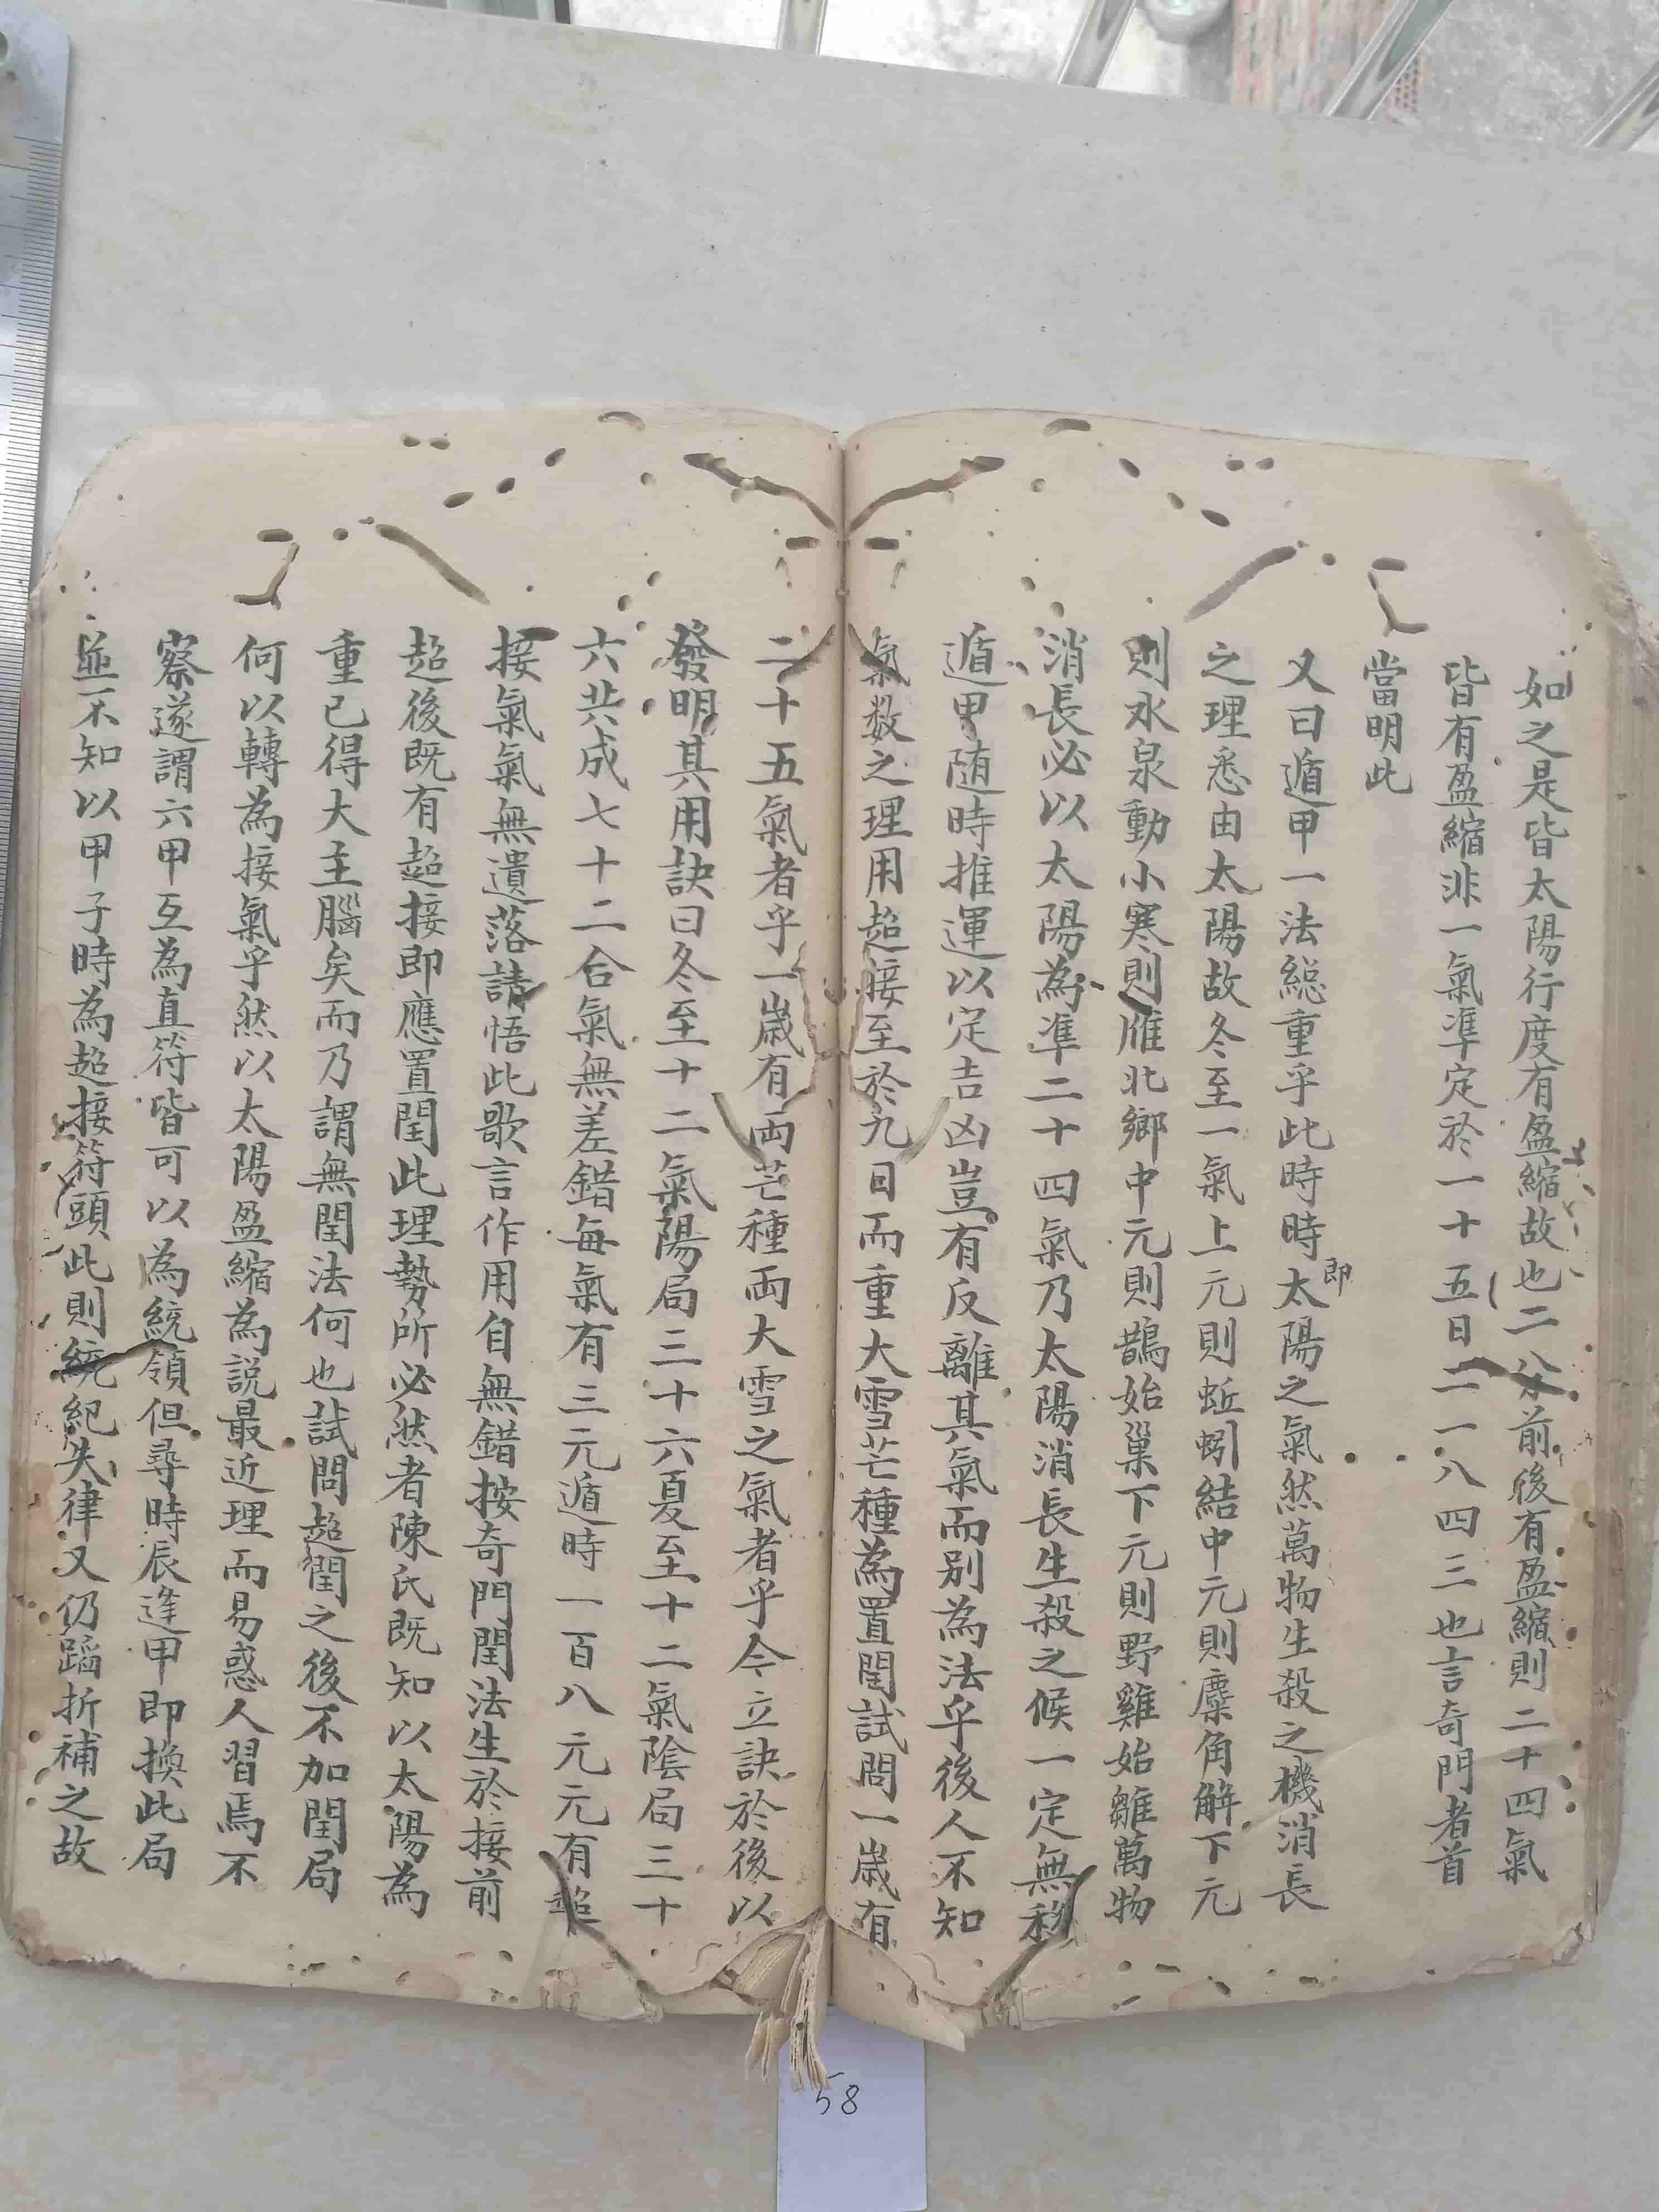 如之是皆太陽行度有盈縮故也二分前後有盈縮則二十四氣
皆有盈縮非一氣準定於一十五日二一八四三也言奇門者首
當明此
又曰遁甲一法総重乎此時時太陽之氣然萬物生殺之機消長
即
之理悉由太陽故冬至一氣上元則蚯蚓結中元則麋角解下元
則水泉動小寒則雁北鄉中元則鵲始巢下元則野雞始雊萬物
消長必以太陽為準二十四氣乃太陽消長生殺之候一定無移
遁甲随時推運以定吉凶豈有反離其氣而別為法乎後人不知
氣数之理用超接至於九日而重大雪芒種為置閏試問一歲有
二十五氣者乎一歲有両芒種両大雪之氣者乎今立訣於後以
發明其用訣曰冬至十二氣陽局三十六夏至十二氣陰局三十
六共成七十二合氣無差錯每氣有三元遁時一百八元元有超
接氣氣無遺落請悟此歌言作用自無錯按奇門閏法生於接前
超後既有超接即應置閏此理勢所必然者陳氏既知以太陽為
重已得大主腦矣而乃謂無閏法何也試問超閏之後不加閏局
何以轉為接氣乎然以太陽盈縮為説最近理而易惑人習焉不
察遂謂六甲互為直符皆可以為統領但尋時辰逢甲即換此局
並不知以甲子時為超接符頭此則統紀失律又仍蹈折補之故
58